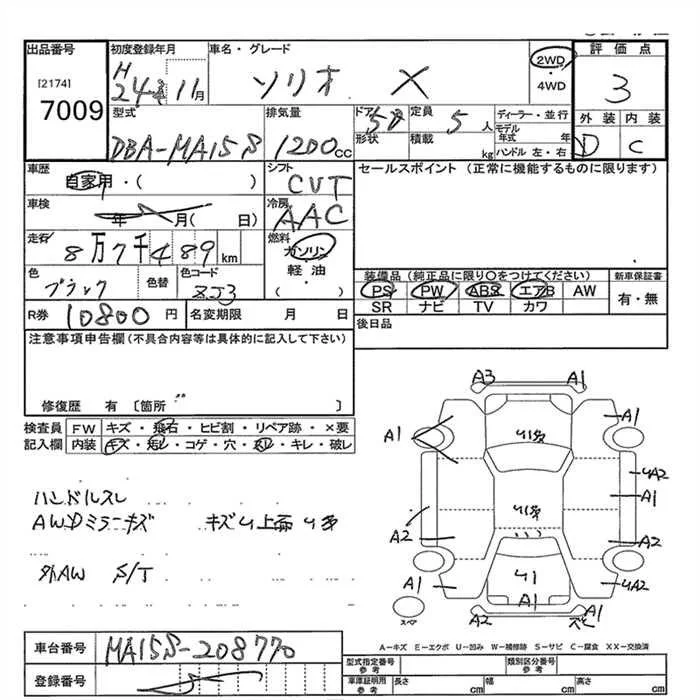 出品番号 初度登録年月 車名・グレード 評価点
[2174] H 24年 11月 ソリオ X 2WD
・4WD 3
7009 型式 排気量 ドア 定員 ディーラー・並行 外装 内装
DBA-MA15S 1200cc 5D 5人 モデル年式 年 D C
形状 積載 kg ハンドル 左・右
車歴 自家用・( ) シフト CVT セールスポイント (正常に機能するものに限ります)
車検 年 月( 日) 冷房 AAC
走行 8万7千489km 燃料 ガソリン
軽油
( )
色 ブラック 色替 色コード ZJ3 装備品 (純正品に限り〇をつけてください) 新車保証書
PS PW ABS エアB AW 有・無
SR ナビ TV カワ
R券 10800円 名変期限 月 日 後日品
注意事項申告欄(不具合内容等は具体的に記入して下さい)
修復歴 有 〔箇所 〕
検査員 FW キズ・飛石・ヒビ割・リペア跡・×要
記入欄 内装 キズ・汚レ・コゲ・穴・スレ・キレ・破レ
A3 A1
A1 A1
A2
A1
A2 A2
A1 A2
A1
A2
ハンドルスレ
AWDミラーキズ
外AW S/T
スペア
A-キズ E-エクボ U-凹み W-補修跡 S-サビ C-腐食 XX-交換済
車台番号 MA15S-208770
登録番号
型式指定番号 参考 類別区分番号 参考
車庫証明用 参考 長さ cm 幅 cm 高さ cm